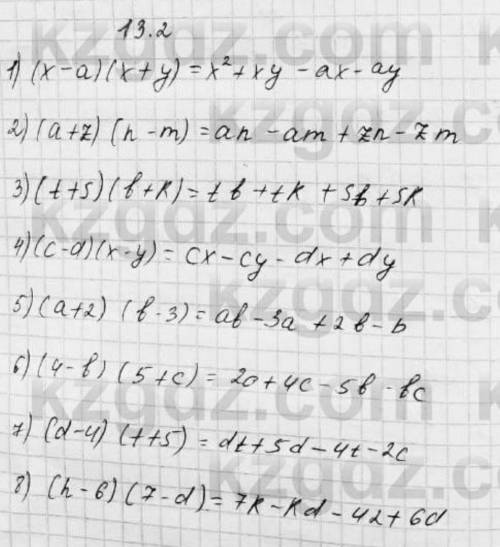 13.2
1) (x-a)(x+y) = x² + xy - ax - ay
2) (a+z)(n-m) = an - am + zn - zm
3) (t+5)(b+k) = tb + tk + 5b + 5k
4) (c-d)(x-y) = cx - cy - dx + dy
5) (a+2)(b-3) = ab - 3a + 2b - b
6) (4-b)(5+c) = 20 + 4c - 5b - bc
7) (d-4)(t+5) = dt + 5d - 4t - 2c
8) (h-6)(7-d) = 7k - kd - 42 + 6d
kzgdz.com